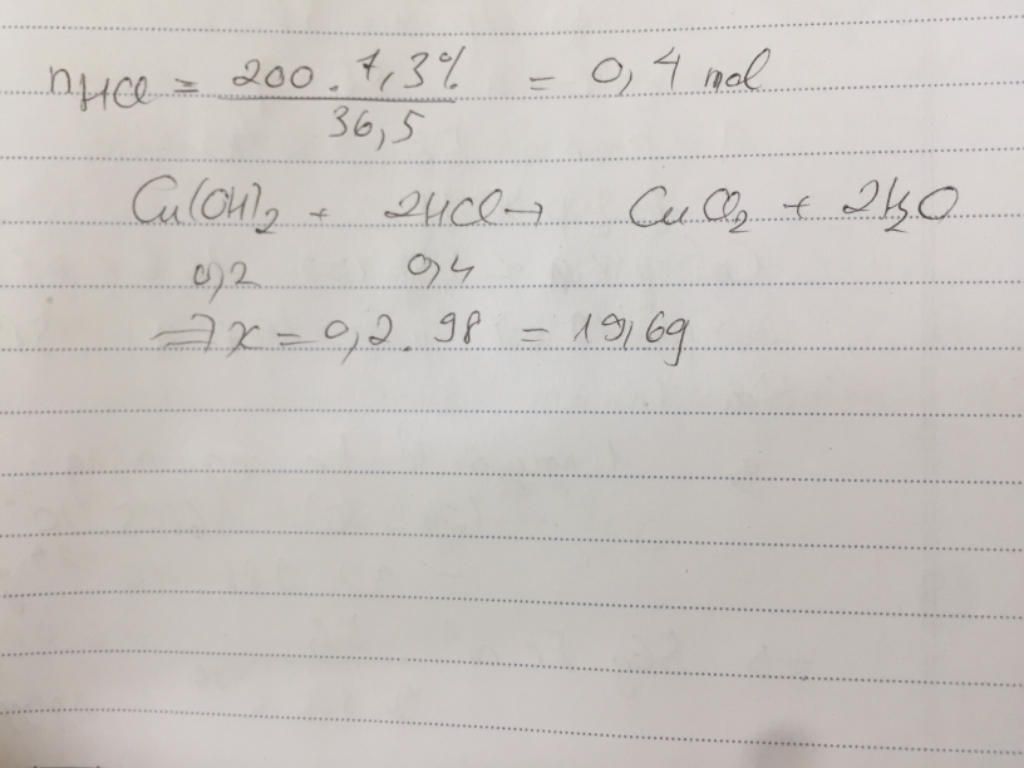 nHCl = 200 . 7,3% / 36,5 = 0,4 mol
Cu(OH)2 + 2HCl → CuCl2 + 2H2O
0,2 0,4
⇒ x = 0,2 . 98 = 19,6g